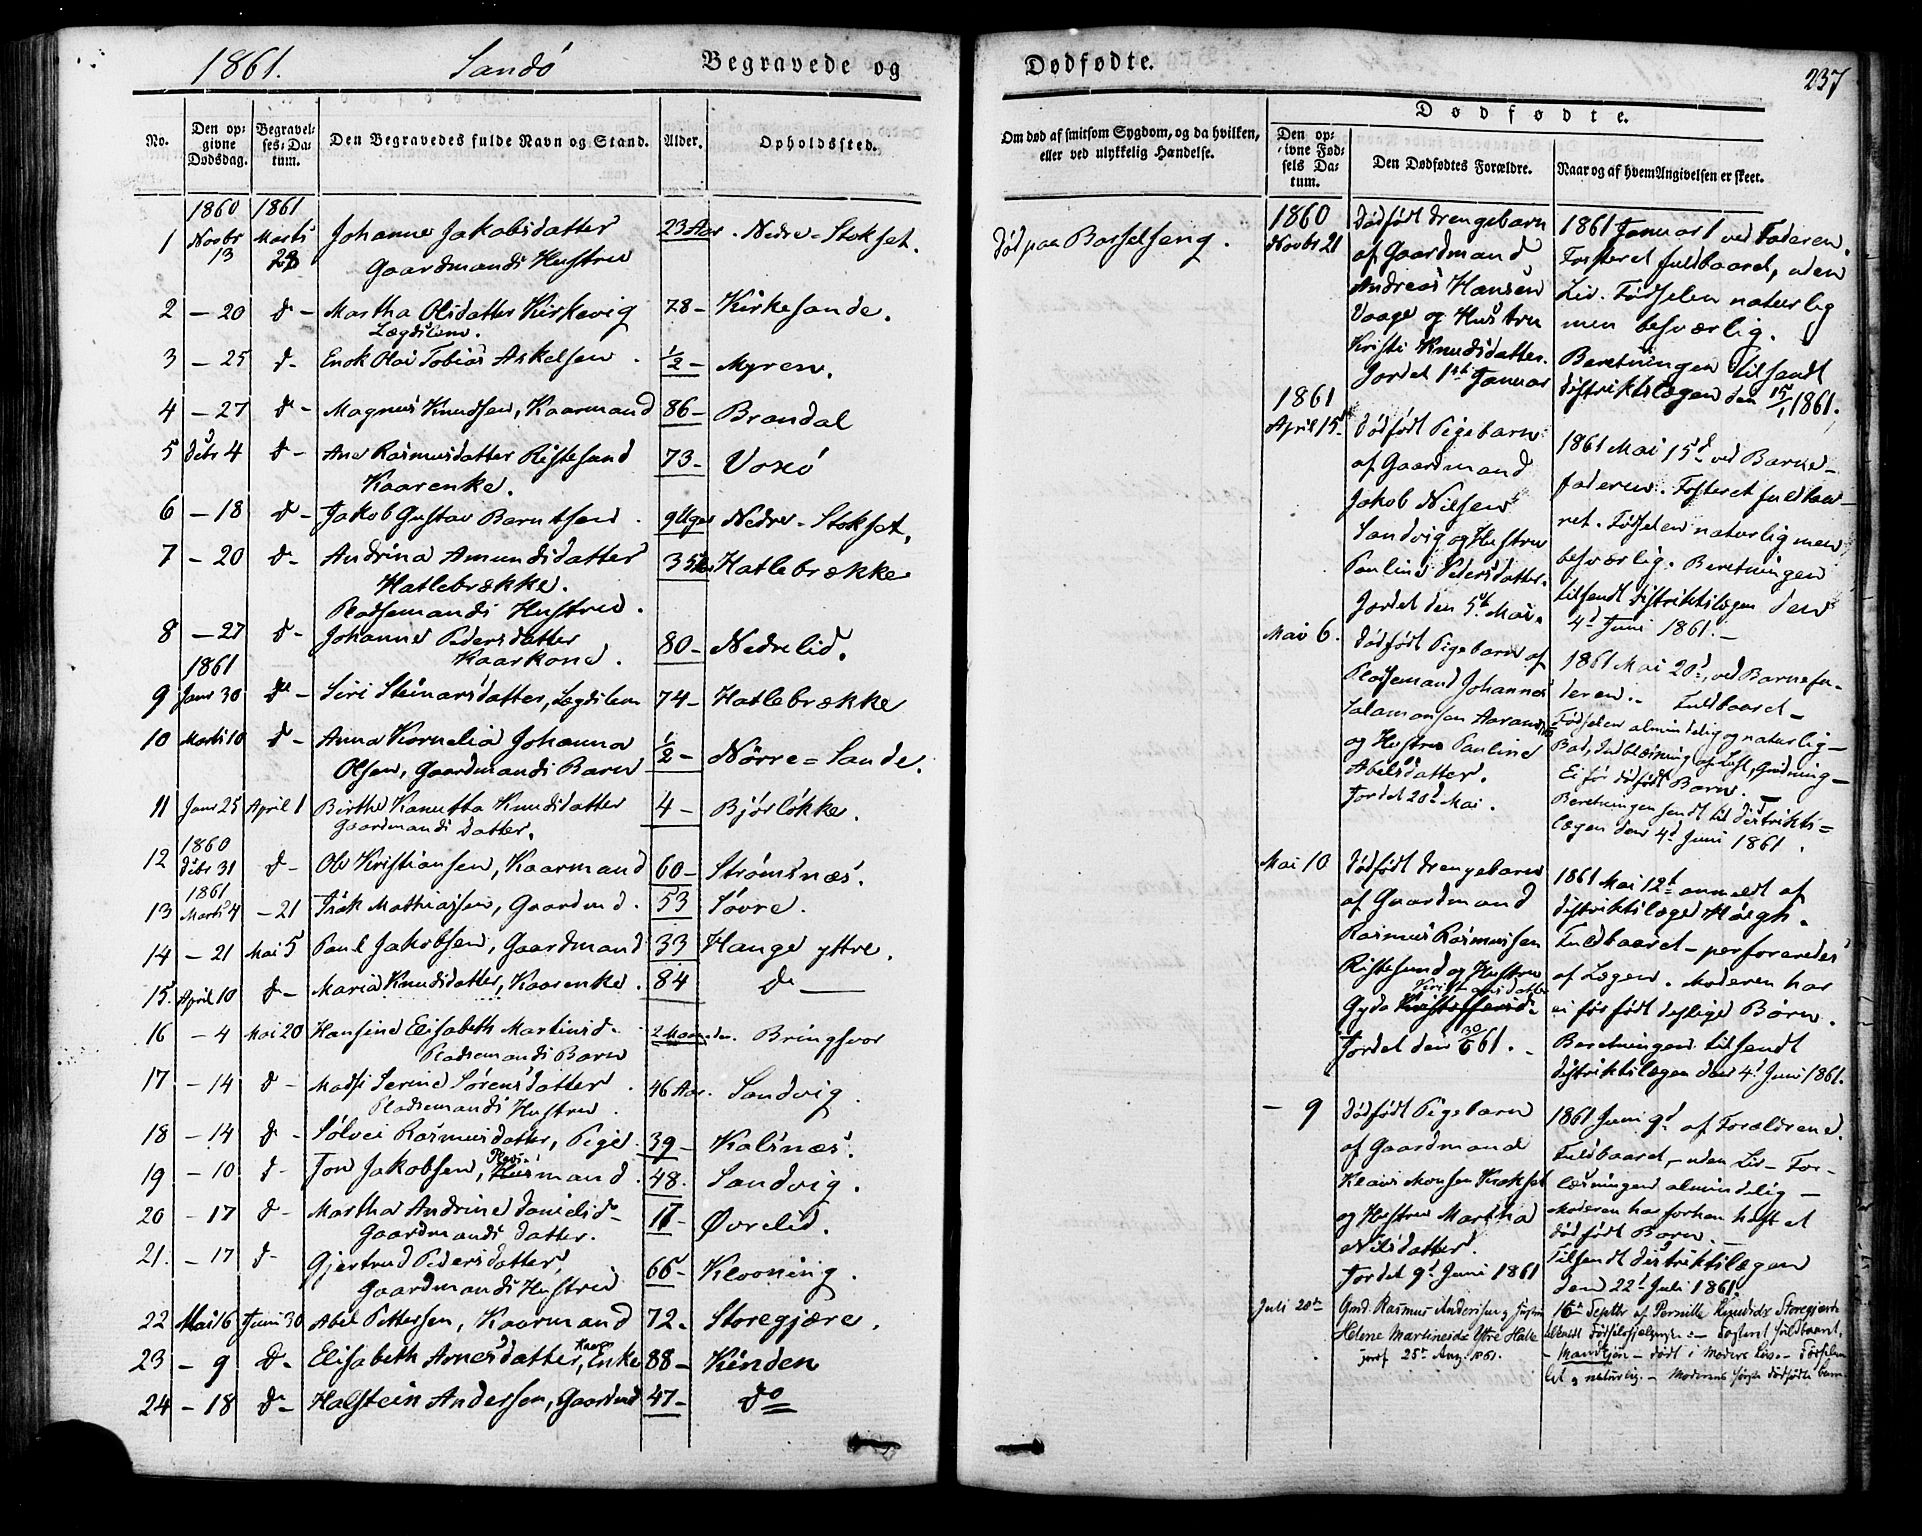 1861. Sandö Begravede og
No. Den opgivne Dødsdag. Begravelses-Datum. Den Begravedes fulde Navn og Stand. Alder. Opholdssted.
1860 1861
1 Novbr 13 Marts 28 Johanne Jakobsdatter 23 Aar. Nedre-Stokset.
Gaardmands Hustru
2 – 20 d– Martha Olsdatter Kirkevig 78– Kirkesande.
Lægdslem.
3 – 25 d– Enok Olai Tobias Askelsen. 1/2– Myren.
4 – 27 d– Magnus Knudsen, Kaarmand 86– Brandal
5 Debr 4 d– Ane Rasmusdatter Ristesund 73– Voxö
Kaarenke.
6 – 18 d– Jakob Gustav Berntsen. 9 Uger Nedre-Stokset.
7 – 20 d– Andrina Amundsdatter 35 Aar Hatlebrække
Hatlebrække.
Pladsemands Hustru.
8 – 27 d– Johanne Pedersdatter 80– Nedrelid.
Kaarkone.
1861
9 Janr 30 do Siri Steinarsdatter, Lægdslem 74– Hatlebrække
10 Marts 10 d– Anna Kornelia Johanna 1/2– Nörre=Sande.
Olsen, Gaardmands Barn
11 Janr 25 April 1 Birthe Kanutta Knudsdatter 4– Bjørløkke.
Gaardmands Datter.
1860
12 Debr 31 d– Ole Kristiansen, Kaarmand 60– Strömsnæs.
1861
13 Marts 4 –21 Isak Mathiassen, Gaardmd. 53 Søvre.
14 – 21 Mai 5 Paul Jakobsen, Gaardmand 33 Hauge yttre.
15. April 10 d– Maria Knudsdatter, Kaarenke. 84 do
16 – 4 Mai 20 Hansine Elisabeth Martinsd– 2 Maaneder. Bringsvor
Pladsemands Barn
17 – 14 d– Madsi Serine Sörensdatter. 46 Aar. Sandvig.
Pladsemands Hustru.
18 – 14 d– Sölvei Rasmusdatter, Pige. 39– Kalsnæs.
19 – 10 d– Jon Jakobsen, Husmand. 48. Sandvig.
20 – 17 d– Martha Andrine Danielsd– 17– Øvrelid.
Gaardmands Datter.
21. – 17 d– Gjertrud Pedersdatter, 66– Klovning.
Gaardmands Hustru
22 Mai 16 Juni 30 Abel Pettersen, Kaarmand 72. Storegjære.
23 – 9 D– Elisabeth Arnesdatter, Kaar Enke 88– Kinden
24 – 18 d– Halstein Andersen, Gaardmd 47– do
Dødfødte. 237
Dødfødte.
Om død af smitsom Sygdom, og da hvilken, eller ved ulykkelig Hændelse. Den opgivne Fødsels Datum. Den Dødfødtes Forældre. Naar og af hvem Angivelsen er skeet.
Död paa Barselseng.
1860
Novbr 21 Dödfödt Drengebarn
af Gaardmand
Andreas Hansen
Vaage og Hustru
Kristi Knudsdatter.
Jordet 1st Januar
1861 Januar 1 ved Faderen.
Fosteret fuldbaaret, uden
Liv. Födselen naturlig
men besværlig.
Beretningen tilsendt
Distriktslægen den 15/1 1861.
1861
April 15 Dödfödt Pigebarn
af Gaardmand
Jakob Nilsen
Sandvig og Hustru
Pauline Pedersdatter.
Jordet den 5t Mai.
1861 Mai 15d ved Barne-
faderen. Fosteret fuldbaa-
ret. Födselen naturlig men
besværlig. Beretningen
tilsendt Distriktslægen den
4d Juni 1861.–
Mai 6. Dödfödt Pigebarn af
Pladsemand Johannes
Salamonsen
og Hustru Pauline
Abelsdatter.
Jordet 20d Mai.
1861 Mai 20d, ved Barnefa-
deren.– Fuldbaaret–
Födselen almindelig og naturlig–
Bad, Indblæsning af Luft, Gnidning–
Ei för dödfödt Barn.
Beretningen sendt til Distrikts=
lægen den 4d Juni 1861.
Mai 10 Dödfödt Drengebarn
af Gaardmand
Rasmus Rasmussen
Ristesund og Hustru
Kristiansdatter
Gyda
Jordet den 61.
1861 Mai 12t anmeldt af
Distriktslæge Høegh.
Fuldbaaret– perforeredes
af Lægen. Moderen har
ei för födt deslige Børn.
Beretningen tilsendt
Distriktslægen den 4d Juni 1861.
– 9 Dödfödt Pigebarn
af Gaardmand
Klaus Monsen
og Hustru Martha
Nilsdatter.
Jordet 9d Juni 1861
1861 Juni 9d af Forældrene.
Fuldbaaret, uden Liv– For-
løsningen almindelig–
Moderen har forhen havt et
dödfödt Barn.–
Tilsendt Distriktslægen
den 22d Juli 1861.
Juli 20de Gmd. Rasmus Andersen og Hustru
Helene Martinesd. Ytre Halle
jord. 25de Aug. 1861.
16de Septbr af Pernille Knudsdr Storegjerde
Födselshjælperske – Fosteret fuldbaaret,
– Mandkjön – dödt i Moders Liv.– Födselen
let & naturlig.–